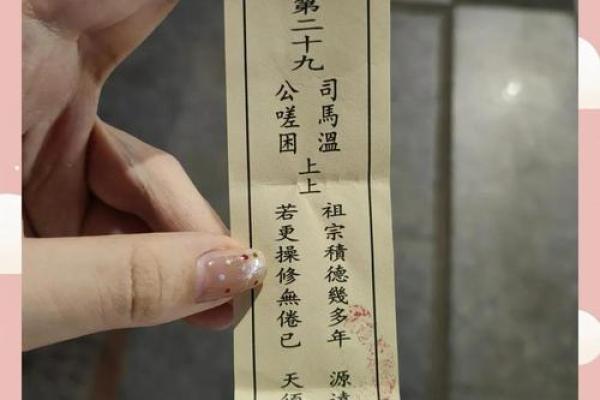 第二十九
司馬溫
公嗟困
上上
祖宗積德幾多年 源
若更操修無倦已 天